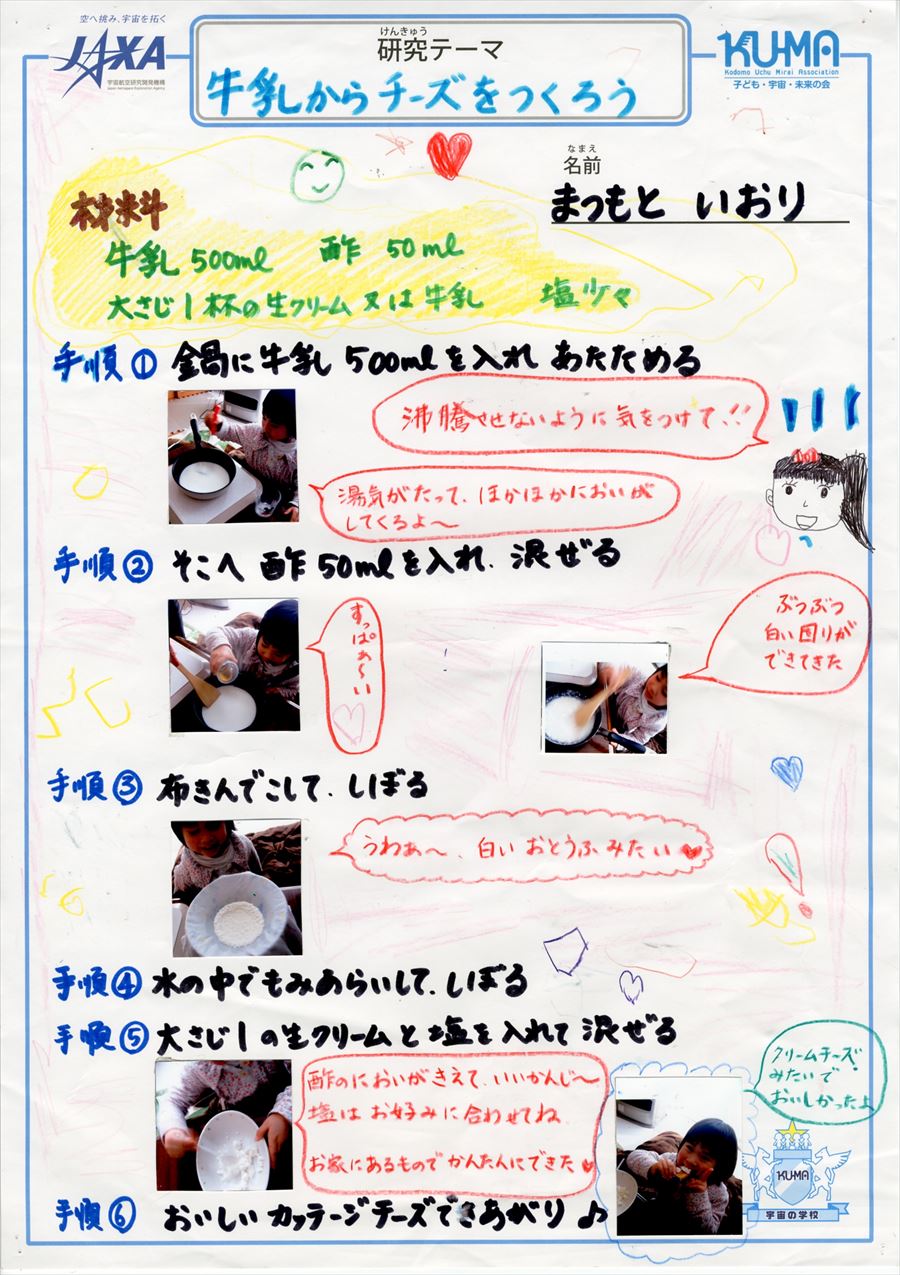 空へ挑み、宇宙を拓く
JAXA
宇宙航空研究開発機構
Japan Aerospace Exploration Agency
けんきゅう
研究テーマ
牛乳からチーズをつくろう
KU-MA
Kodomo Uchu Mirai Association
子ども・宇宙・未来の会
なまえ
名前
まつもと いおり
材料
牛乳 500ml 酢 50ml
大さじ1杯の生クリーム又は牛乳 塩少々
手順① 金咼に牛乳 500mlを入れ あたためる
沸騰させないように気をつけて!!
湯気がたって、ほかほかにおいが
してくるよ〜
手順② そこへ 酢50mlを入れ、混ぜる
すっぱぁ〜い
ぶつぶつ
白い固りが
できてきた
手順③ 布きんでこして、しぼる
うわぁ〜、白い おとうふみたい♥
手順④ 水の中でもみあらいして、しぼる
手順⑤ 大さじ1の生クリームと塩を入れて混ぜる
酢のにおいがきえて、いいかんじ〜
塩はお好みに合わせてね
お家にあるものでかんたんにできた♥
クリームチーズ
みたいで
おいしかったよ
手順⑥ おいしい カッテージチーズできあがり♪
KU-MA
宇宙の学校